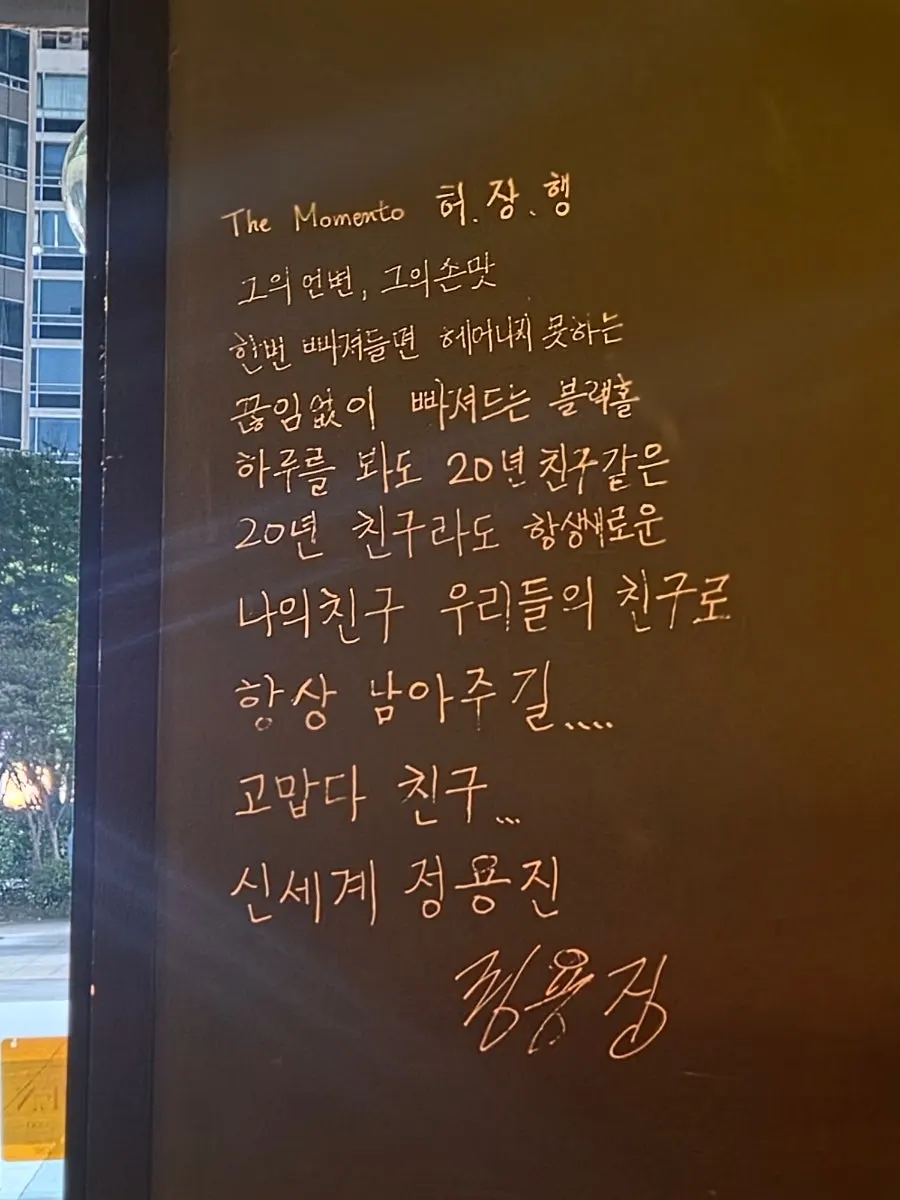 The Momento 허.장.행
그의 언변, 그의 손맛
한번 빠져들면 헤머나지 못하는
끊임없이 빠져드는 블랙홀
하루를 봐도 20년 친구같은
20년 친구라도 항상새로운
나의친구 우리들의 친구로
항상 남아주길....
고맙다 친구...
신세계 정용진
정용진